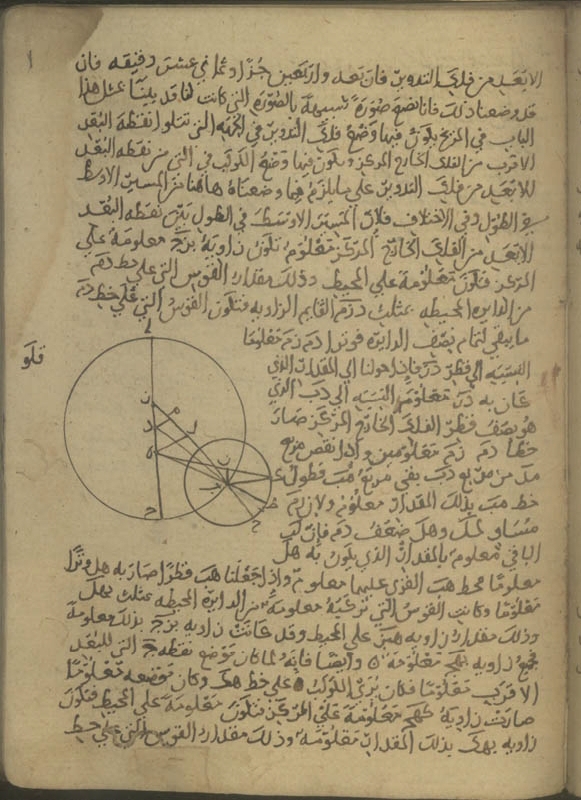 الابعد من فلك التدوير فان بعد واربعين جزءا وثماني عشرة دقيقه فان
قد وضعنا ذلك فانا نضع صورة شبيهة بالصورة التي كانت لنا قد بلينا بمثل هذا
الباب في المريخ يكون فيها وضع فلك التدوير في الجهه التي تتلوا نقطه البعد
الاقرب من الفلك الخارج المركز ويكون فيها وضع الكوكب في التي من نقطه البعد
الابعد من فلك التدوير على ما يلزم فيما وضعناه هاهنا من المسير الاوسط
في الطول وفي الاختلاف فلان المسير الاوسط في الطول بين نقطه البعد
الابعد من الفلك الخارج المركز معلوم تكون زاويه ب ز ج معلومه على
المركز فتكون معلومة على المحيط وذلك مقدار القوس التي على خط د م
من الدايره المحيطه بمثلث د ز م القايم الزاويه فتكون القوس التي على خط ز م
ما يبقي لتمام نصف الدايره فوترا د م ز م معلوما
النسبه الي قطر د ز فاذا حولنا الي المقدار الذي
كان به د ز معلوم النسبه الي د ب الذي
هو نصف قطر الفلك الخارج المركز صار
خطا د م ز م معلومين واذا نقص مربع
م د من مربع د ب بقي مربع م ب فطول
خط م ب بذلك المقدار معلوم ولان ل م
مساو ل م ز وه ل ضعف د م فان ل ب
الباقي معلوم بالمقدار الذي يكون به ه ل
معلوما فخط ه ب القوي عليهما معلوم واذا جعلنا ه ب قطرا صار به ه ل وترا
معلوما وكانت القوس التي توتره معلومة من الدايره المحيطه بمثلث ب ه ل
وذلك مقدار زاويه ه ب ز على المحيط وقد كانت زاويه ب ز ج بذلك معلومة
فجميع زاويه ب ه ج معلومة وايضا فانه لما كان موضع نقطه ج التي للبعد
الاقرب معلوما فكان يري الكوكب على خط ه ك وكان موضعه معلوما
صارت زاوية ك ه ج معلومة على المركز فتكون معلومة على المحيط فتكون
زاويه ب ه ك بذلك المقدار معلومه وذلك مقدار القوس التي على خط
قلو